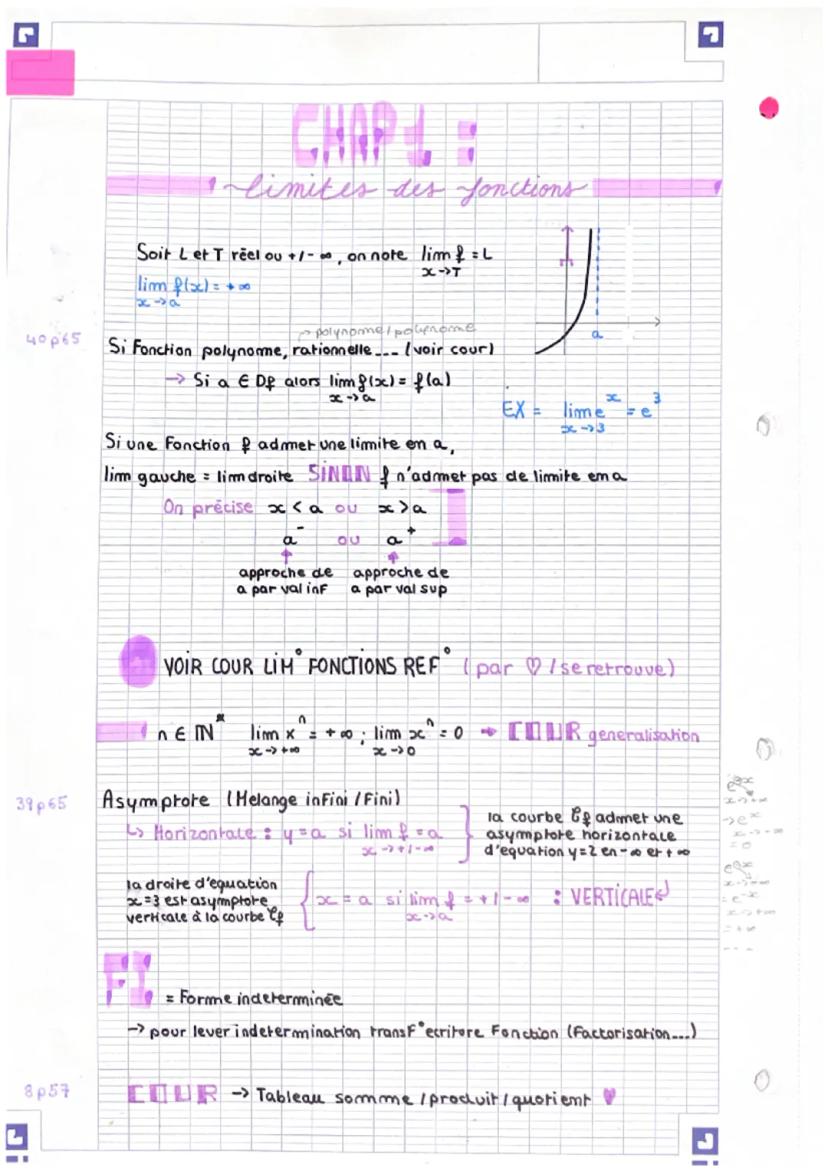 CHAP 1 :
limites des fonctions
Soit L et T réel ou +/- ∞, on note lim f = L
x→T
lim f(x) = +∞
x→a
a
→ polynome/polynome
40p65
Si Fonction polynome, rationnelle... (voir cour)
→ Si a ∈ Df alors lim f(x) = f(a)
x→a
EX = lim e^x = e^3
x→3
Si une Fonction f admet une limite en a,
lim gauche = lim droite SINON f n'admet pas de limite en a
On précise x < a ou x > a
a⁻ ou a⁺
approche de approche de
a par val inf a par val sup
VOIR COUR LIM° FONCTIONS REF° (par ♡ / se retrouve)
n ∈ ℕ* lim x^n = +∞ ; lim x^n = 0 → COUR generalisation
x→+∞ x→0
39p65
Asymptote (Melange infini / Fini)
↳ Horizontale : y = a si lim f = a
x→+/-∞
la courbe Cf admet une
asymptote horizontale
d'equation y=2 en -∞ et +∞
la droite d'equation
x=3 est asymptote
verticale à la courbe Cf
x = a si lim f = +/-∞ : VERTICALE
x→a
FI = Forme indeterminée
→ pour lever indetermination transf° ecriture Fonction (Factorisation...)
8p57
COUR → Tableau somme / produit / quotient ♥